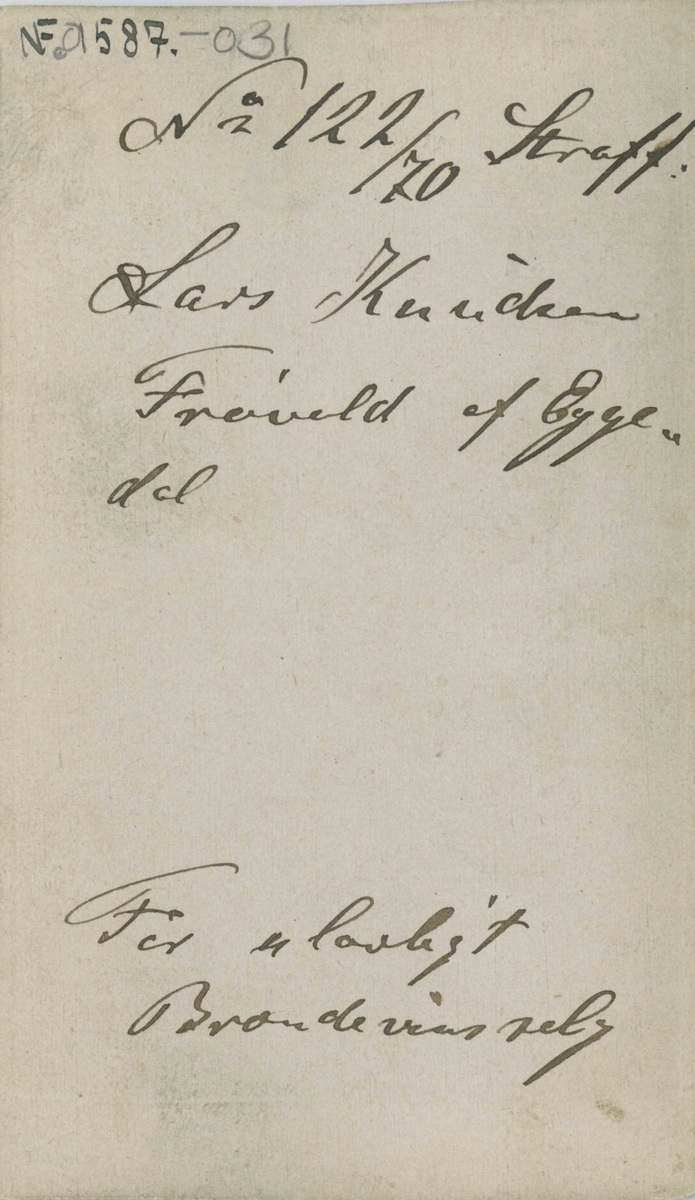 NF.01587.-031
No 122/70 Straff.
Lars Knudsen
Frøveld af Egge„
dal
For ulovligt
Brændevinssalg